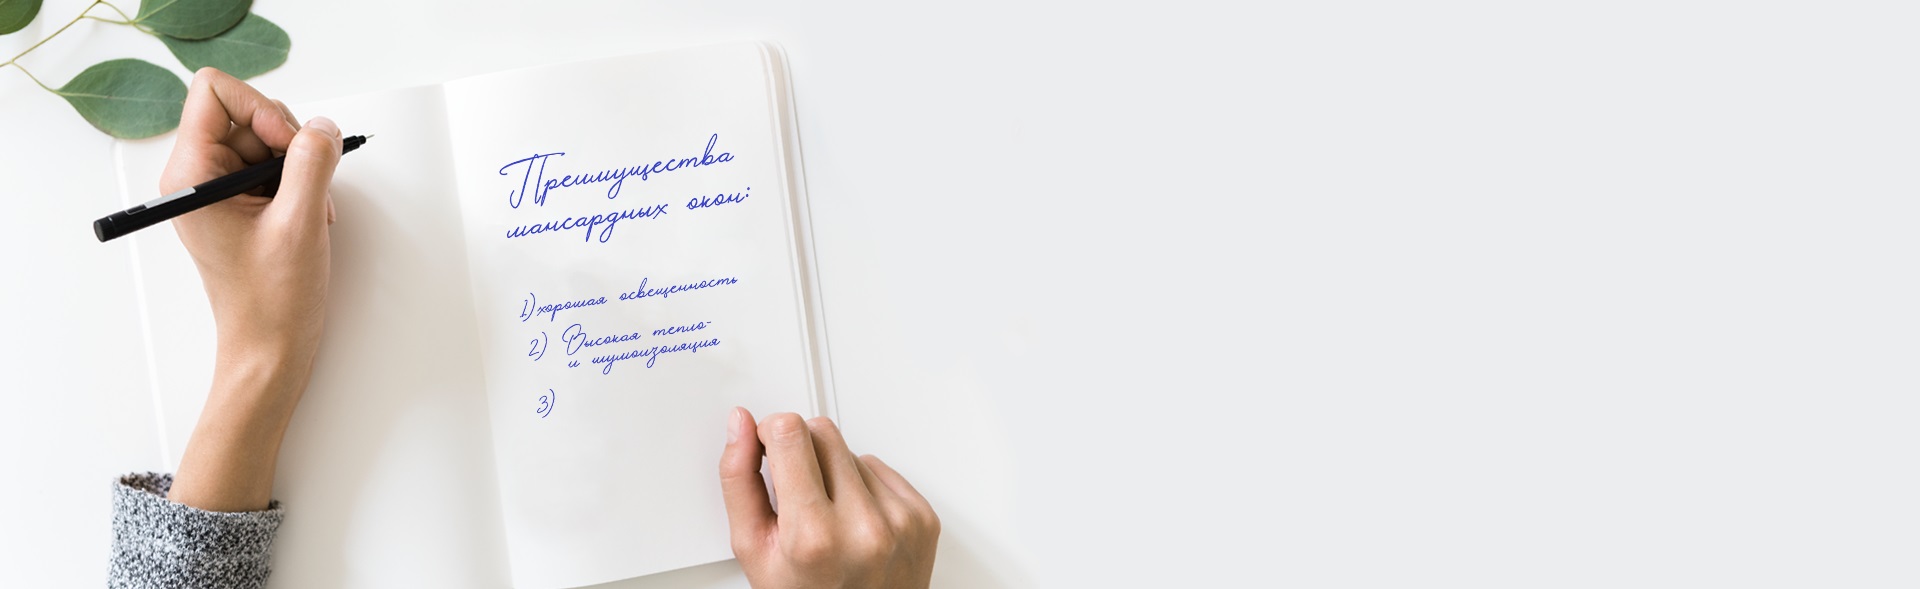 Преимущества
мансардных окон:
1) хорошая освещенность
2) Высокая тепло-
и шумоизоляция
3)